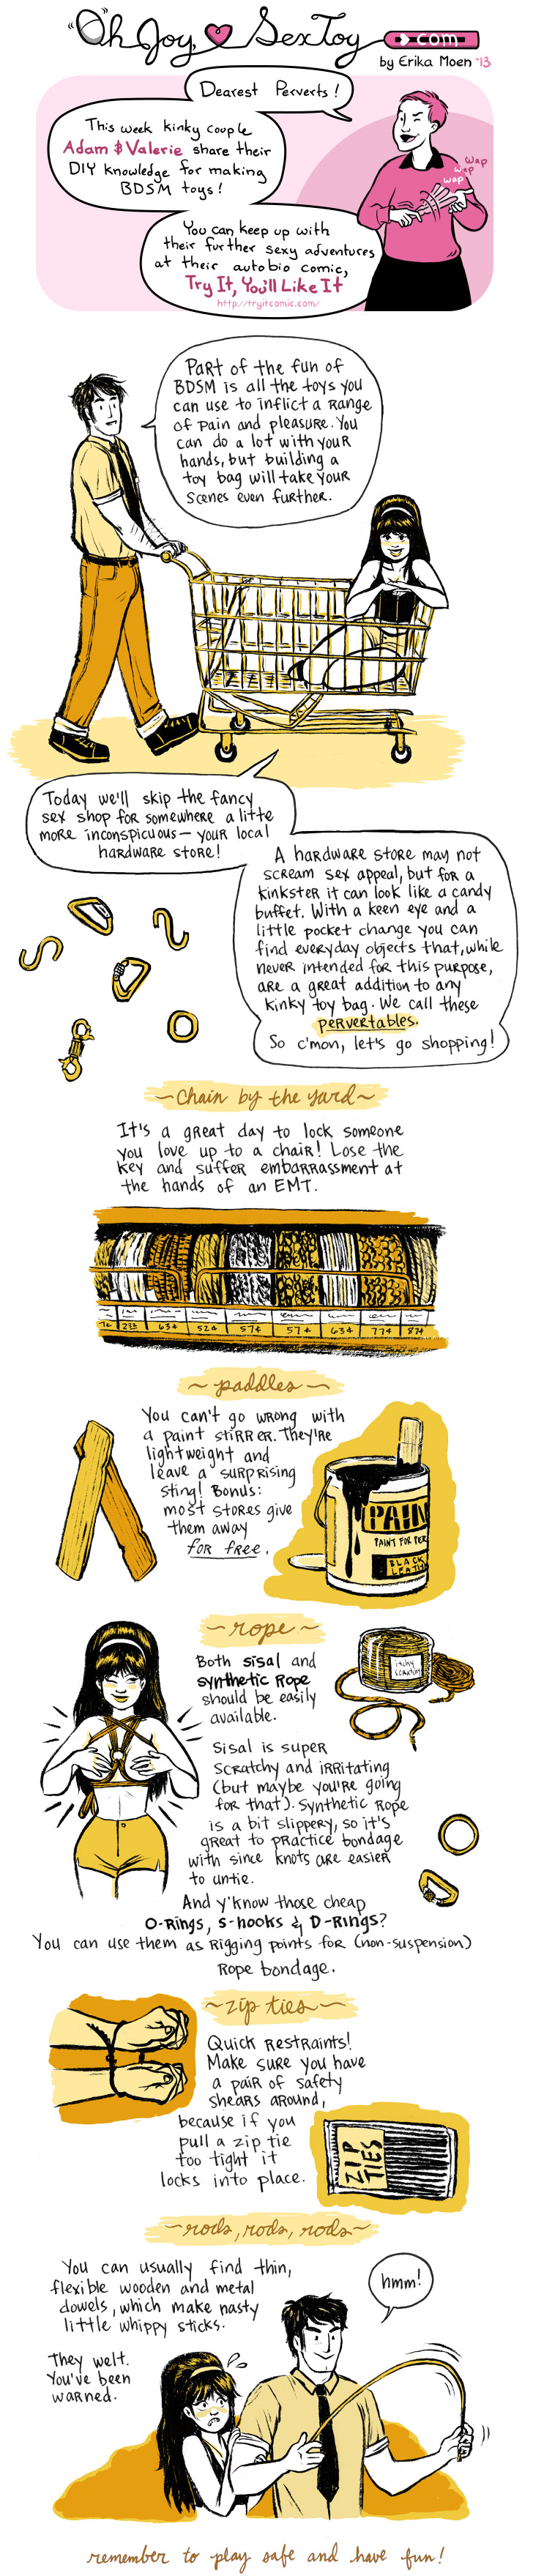 "Oh Joy, Sex Toy
.com
by Erika Moen '13
Dearest Perverts!
This week kinky couple
Adam & Valerie share their
DIY knowledge for making
BDSM toys!
wap
wap
wap
You can keep up with
their further sexy adventures
at their autobio comic,
Try It, You'll Like It
http://tryitcomic.com/
Part of the fun of
BDSM is all the toys you
can use to inflict a range
of pain and pleasure. You
can do a lot with your
hands, but building a
toy bag will take your
scenes even further.
Today we'll skip the fancy
sex shop for somewhere a litte
more inconspicuous — your local
hardware store!
A hardware store may not
scream sex appeal, but for a
kinkster it can look like a candy
buffet. With a keen eye and a
little pocket change you can
find everyday objects that, while
never intended for this purpose,
are a great addition to any
kinky toy bag. We call these
pervertables.
So c'mon, let's go shopping!
~chain by the yard~
It's a great day to lock someone
you love up to a chair! Lose the
key and suffer embarrassment at
the hands of an EMT.
63¢ 52¢ 57¢ 57¢ 63¢ 77¢ 87¢
~paddles~
You can't go wrong with
a paint stirrer. They're
lightweight and
leave a surprising
sting! Bonus:
most stores give
them away
for free.
PAIN
PAINT FOR PER
BLACK
LEATH
~rope~
Both sisal and
synthetic rope
should be easily
available.
itchy
scratchy
Sisal is super
scratchy and irritating
(but maybe you're going
for that). Synthetic rope
is a bit slippery, so it's
great to practice bondage
with since knots are easier
to untie.
And y'know those cheap
O-rings, S-hooks & D-rings?
You can use them as rigging points for (non-suspension)
rope bondage.
~zip ties~
Quick restraints!
Make sure you have
a pair of safety
shears around,
because if you
pull a zip tie
too tight it
locks into place.
ZIP
TIES
~rods, rods, rods~
You can usually find thin,
flexible wooden and metal
dowels, which make nasty
little whippy sticks.
hmm!
They welt.
You've been
warned.
remember to play safe and have fun!